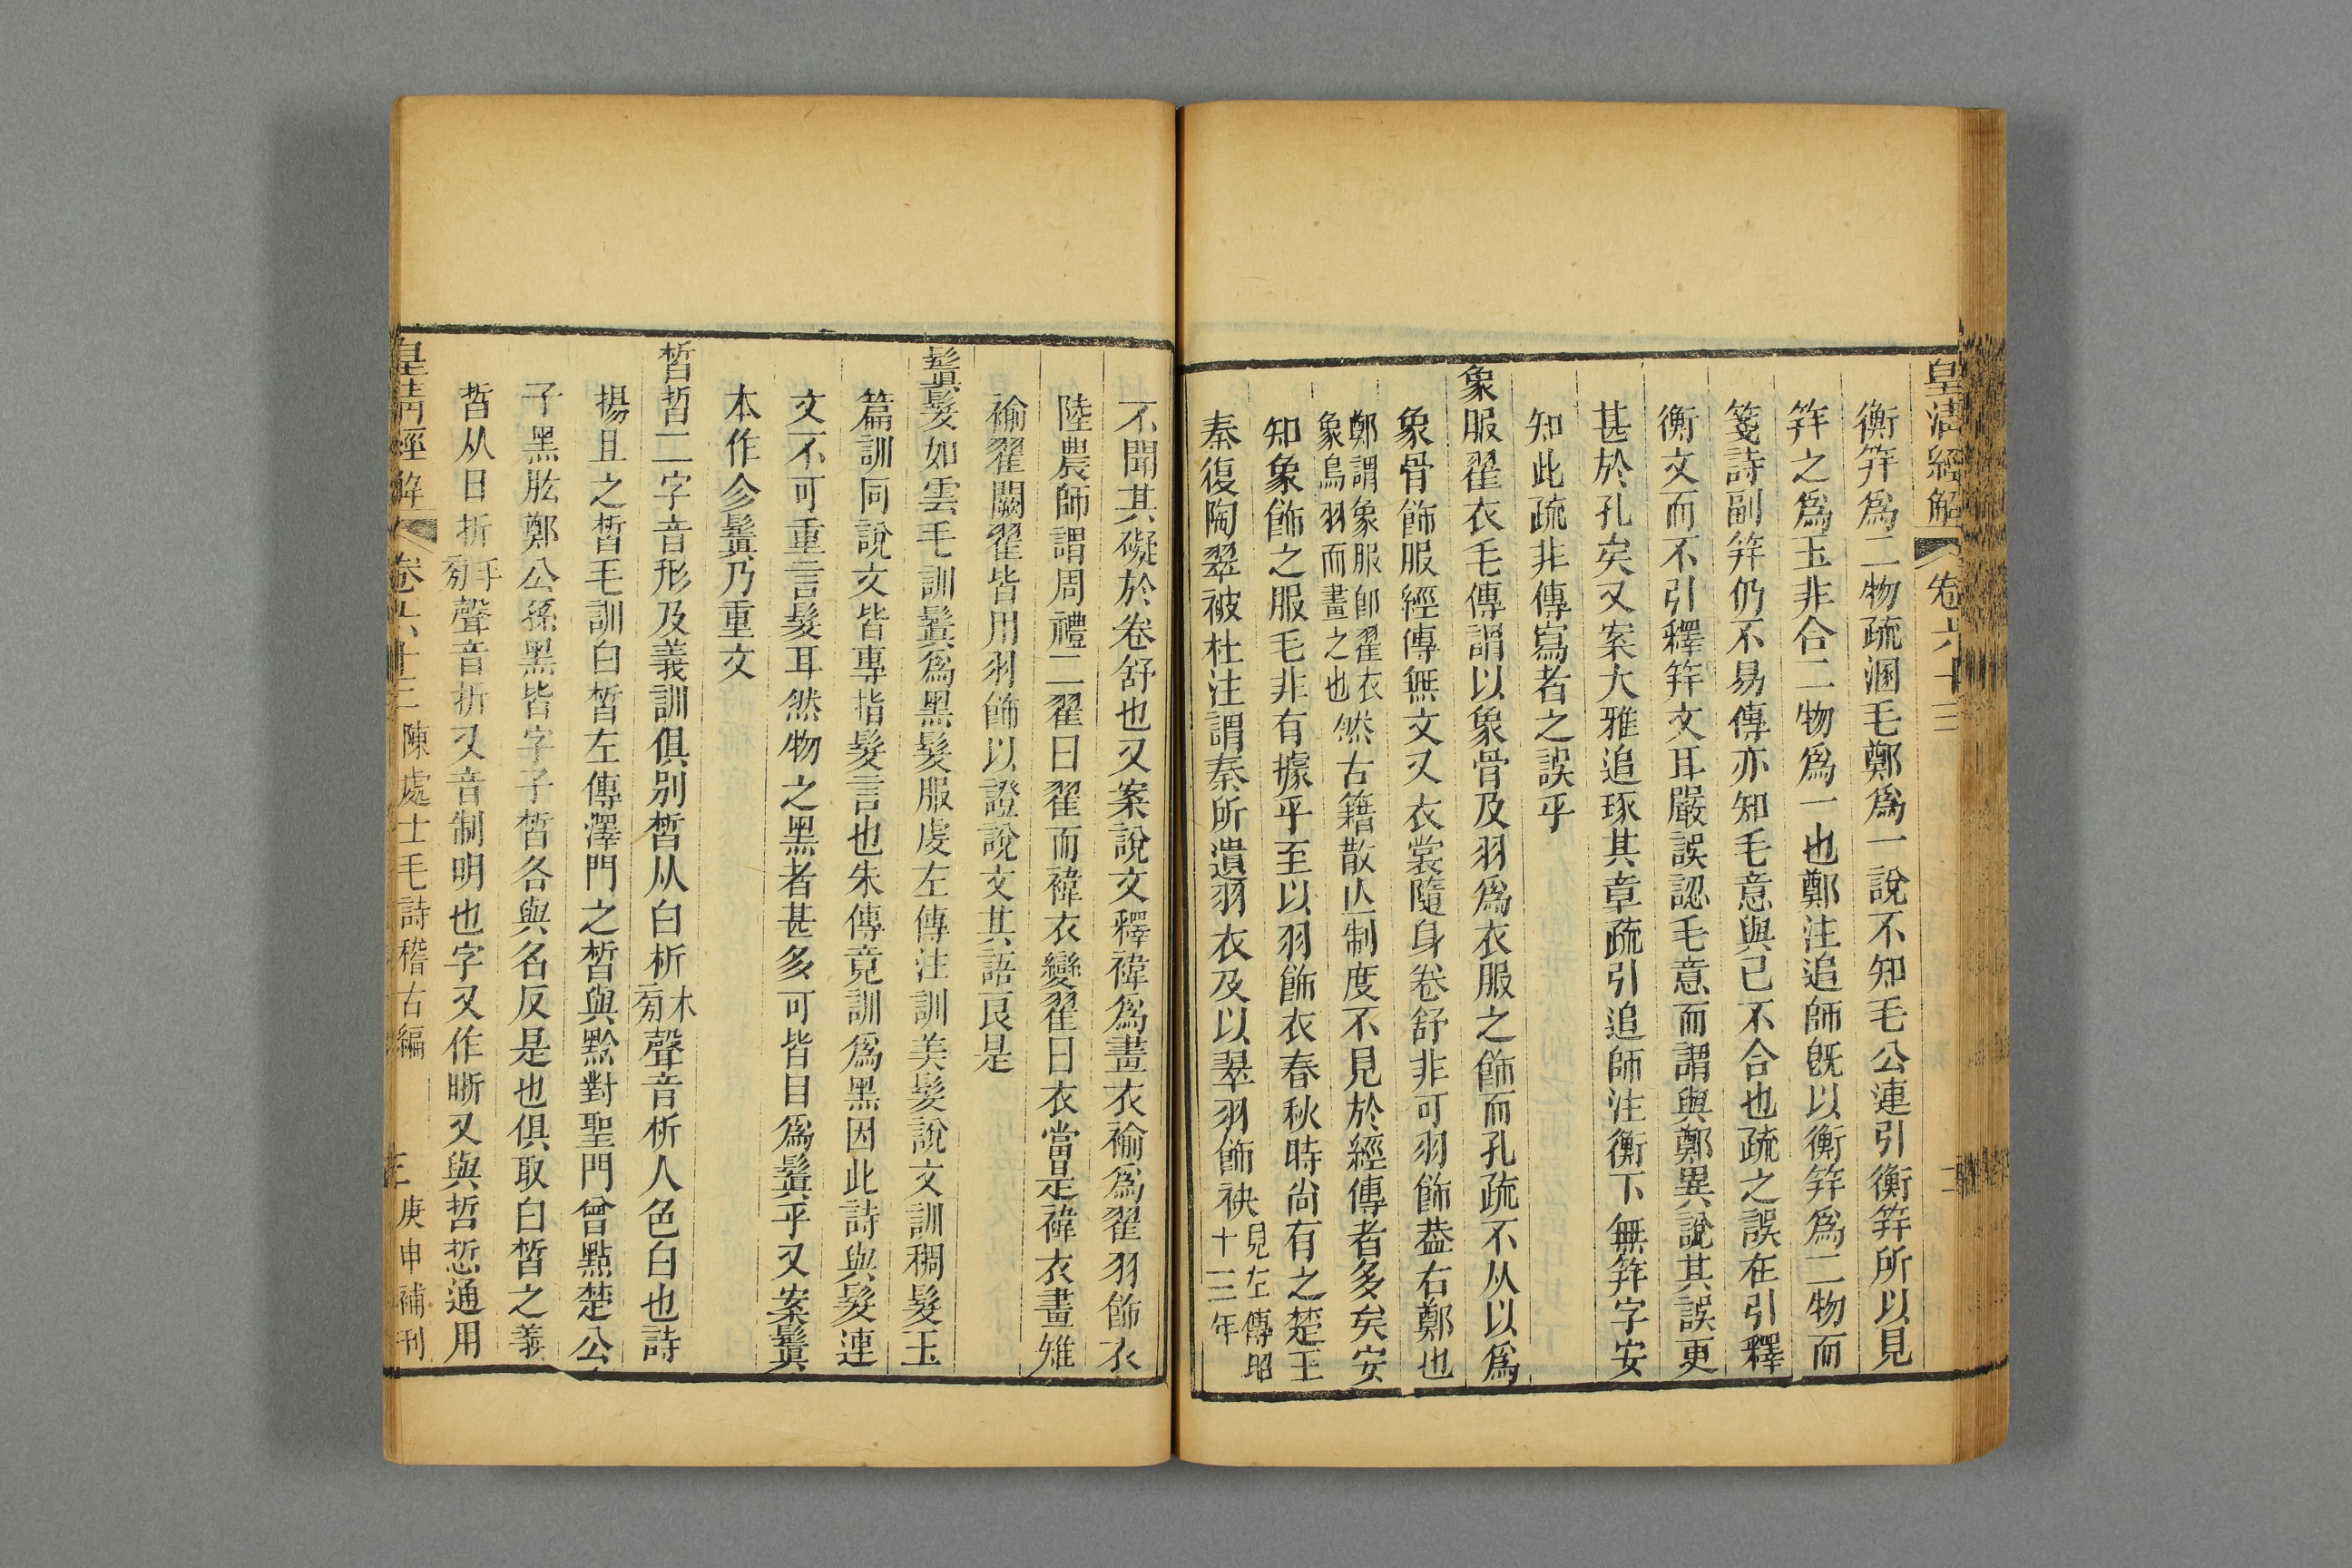 皇清經解 卷六十三
衡笄爲二物疏溷毛鄭爲一說不知毛公連引衡笄所以見
笄之爲玉非合二物爲一也鄭注追師旣以衡笄爲二物而
箋詩副笄仍不易傳亦知毛意與已不合也疏之誤在引釋
衡文而不引釋笄文耳嚴誤認毛意而謂與鄭異說其誤更
甚於孔矣又案大雅追琢其章疏引追師注衡下無笄字安
知此疏非傳寫者之誤乎
象服翟衣毛傳謂以象骨及羽爲衣服之飾而孔疏不从以爲
象骨飾服經傳無文又衣裳隨身卷舒非可羽飾葢右鄭也
鄭謂象服卽翟衣象鳥羽而畫之也然古籍散亾制度不見於經傳者多矣安
知象飾之服毛非有據乎至以羽飾衣春秋時尚有之楚王
秦復陶翠被杜注謂秦所遺羽衣及以翠羽飾袂見左傳昭十二年
不聞其礙於卷舒也又案說文釋褘爲畫衣褕爲翟羽飾衣
陸農師謂周禮二翟曰翟而褘衣變翟曰衣當是褘衣畫雉
褕翟闕翟皆用羽飾以證說文其語良是
鬒髮如雲毛訓鬒爲黑髮服虔左傳注訓美髮說文訓稠髮玉
篇訓同說文皆專指髮言也朱傳竟訓爲黑因此詩與髮連
文不可重言髮耳然物之黑者甚多可皆目爲鬒乎又案鬒
本作㐱鬒乃重文
皙晢二字音形及義訓俱别皙从白析木旁聲音析人色白也詩
揚且之皙毛訓白皙左傳澤門之皙與黔對聖門曾點楚公
子黑肱鄭公孫黑皆字子皙各與名反是也俱取白皙之義
晢从日折手旁聲音折又音制明也字又作晣又與哲悊通用
皇清經解 卷六十三 陳處士毛詩稽古編 庚申補刊